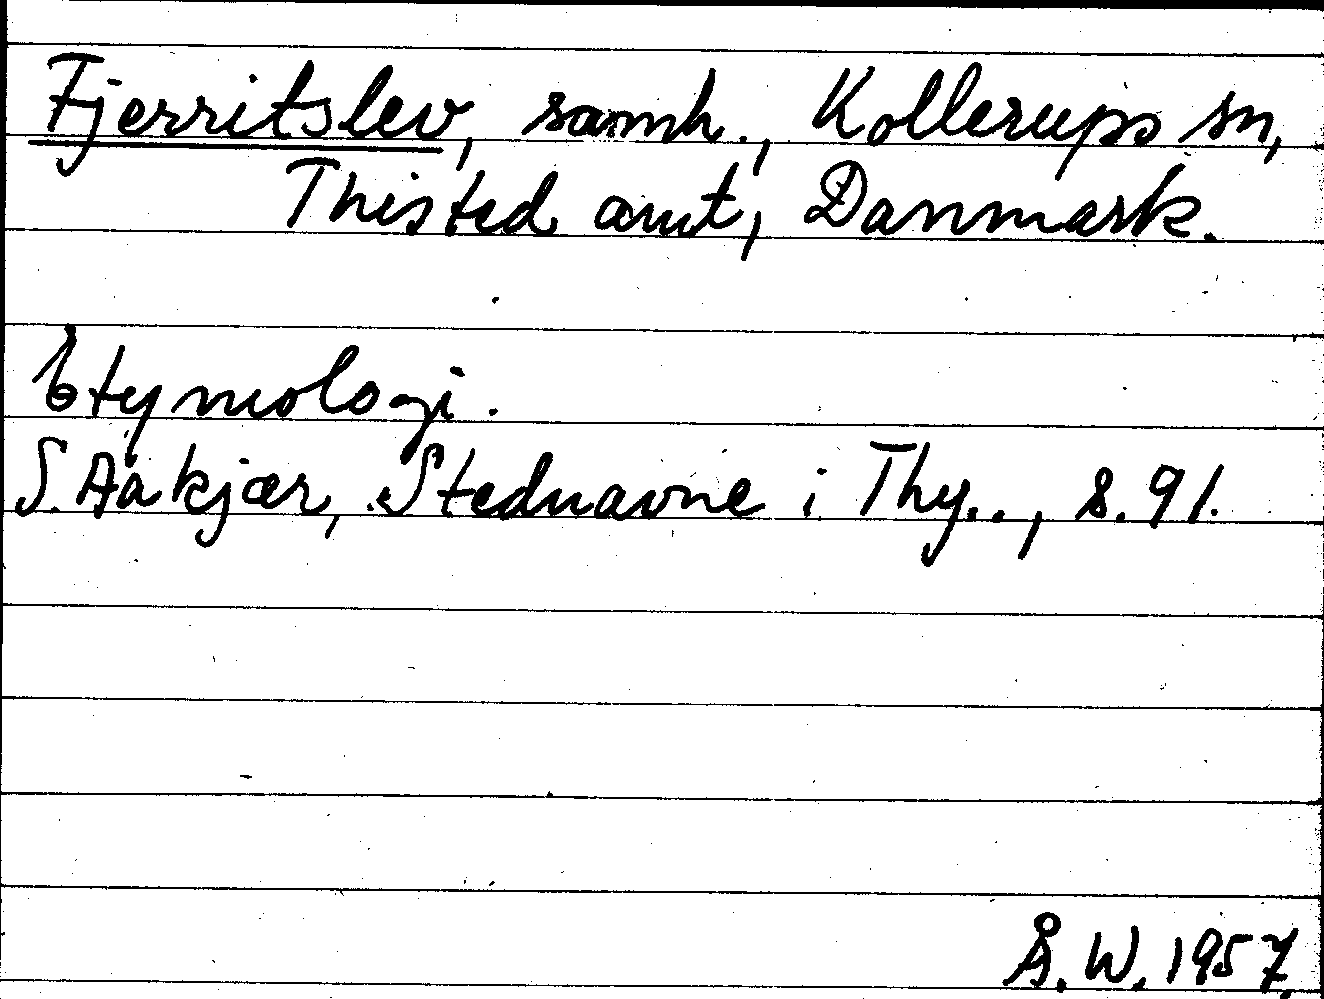 Fjerritslev, samh., Kollerups sn,
Thisted amt, Danmark.
Etymologi.
S. Aakjær, Stednavne i Thy.., s. 91.
Å. W. 1957.